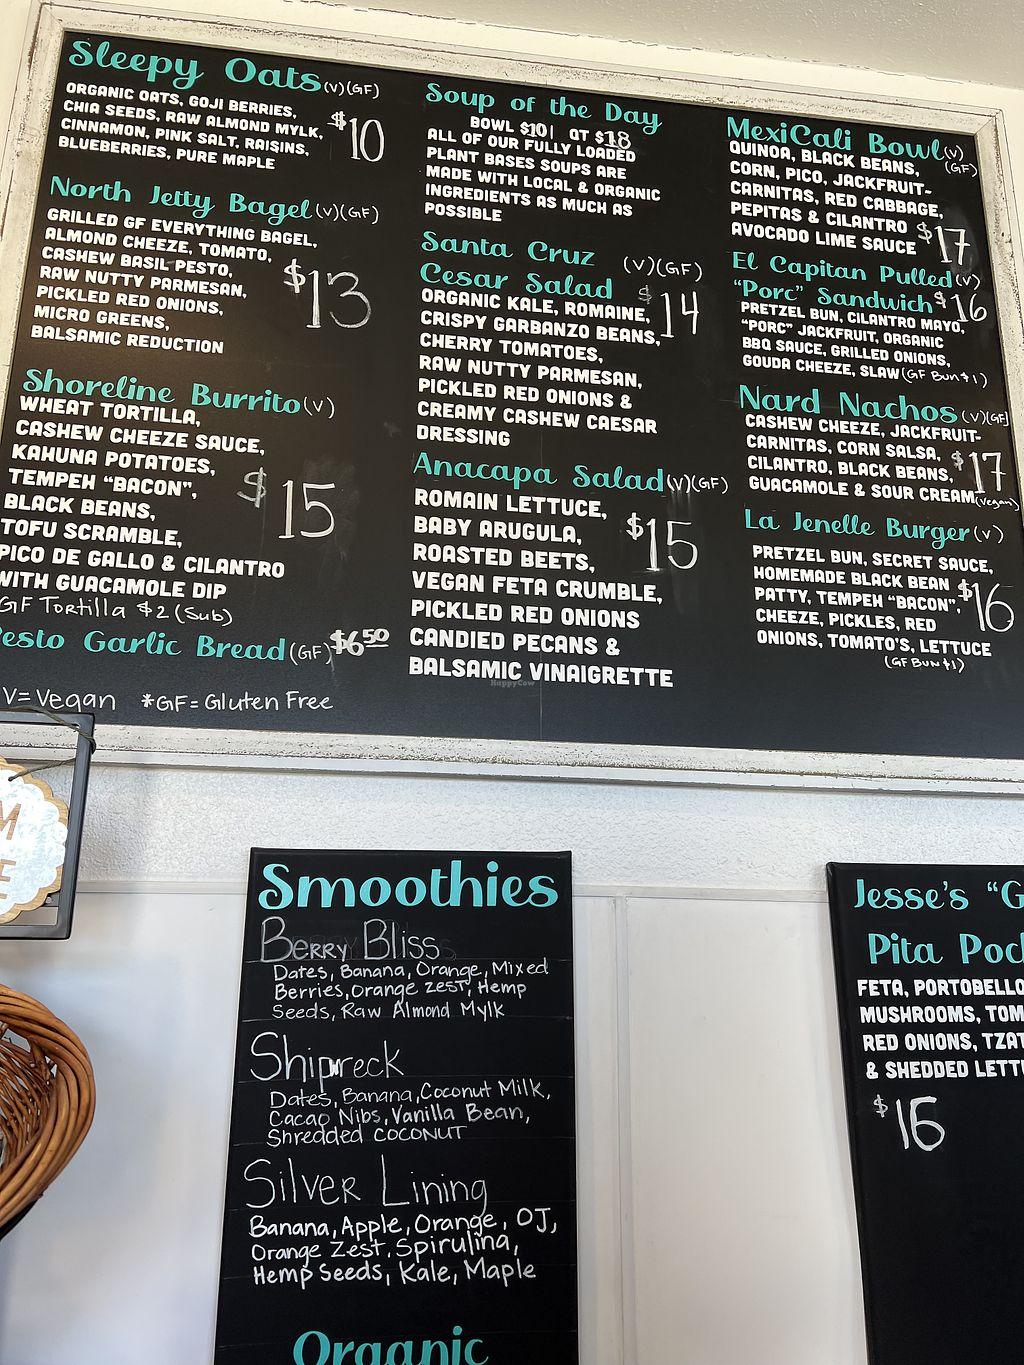 Sleepy Oats (V)(GF)
ORGANIC OATS, GOJI BERRIES,
CHIA SEEDS, RAW ALMOND MYLK,
CINNAMON, PINK SALT, RAISINS,
BLUEBERRIES, PURE MAPLE
$10
North Jetty Bagel (V)(GF)
GRILLED GF EVERYTHING BAGEL,
ALMOND CHEEZE, TOMATO,
CASHEW BASIL PESTO,
RAW NUTTY PARMESAN,
PICKLED RED ONIONS,
MICRO GREENS,
BALSAMIC REDUCTION
$13
Shoreline Burrito (V)
WHEAT TORTILLA,
CASHEW CHEEZE SAUCE,
KAHUNA POTATOES,
TEMPEH "BACON",
BLACK BEANS,
TOFU SCRAMBLE,
PICO DE GALLO & CILANTRO
WITH GUACAMOLE DIP
$15
GF Tortilla $2 (Sub)
Pesto Garlic Bread (GF) $6.50
V=Vegan *GF=Gluten Free
Soup of the Day
BOWL $10 | QT $18
ALL OF OUR FULLY LOADED
PLANT BASES SOUPS ARE
MADE WITH LOCAL & ORGANIC
INGREDIENTS AS MUCH AS
POSSIBLE
Santa Cruz (V)(GF)
Cesar Salad $14
ORGANIC KALE, ROMAINE,
CRISPY GARBANZO BEANS,
CHERRY TOMATOES,
RAW NUTTY PARMESAN,
PICKLED RED ONIONS &
CREAMY CASHEW CAESAR
DRESSING
Anacapa Salad (V)(GF)
ROMAIN LETTUCE,
BABY ARUGULA,
ROASTED BEETS,
VEGAN FETA CRUMBLE,
PICKLED RED ONIONS
CANDIED PECANS &
BALSAMIC VINAIGRETTE
$15
MexiCali Bowl (V)
(GF)
QUINOA, BLACK BEANS,
CORN, PICO, JACKFRUIT-
CARNITAS, RED CABBAGE,
PEPITAS & CILANTRO
AVOCADO LIME SAUCE $17
El Capitan Pulled (V)
"Porc" Sandwich $16
PRETZEL BUN, CILANTRO MAYO,
"PORC" JACKFRUIT, ORGANIC
BBQ SAUCE, GRILLED ONIONS,
GOUDA CHEEZE, SLAW (GF Bun $1)
Nard Nachos (V)(GF)
CASHEW CHEEZE, JACKFRUIT-
CARNITAS, CORN SALSA,
CILANTRO, BLACK BEANS,
GUACAMOLE & SOUR CREAM (vegan)
$17
La Jenelle Burger (V)
PRETZEL BUN, SECRET SAUCE,
HOMEMADE BLACK BEAN
PATTY, TEMPEH "BACON",
CHEEZE, PICKLES, RED
ONIONS, TOMATO'S, LETTUCE
(GF Bun $1)
$16
HappyCow
Smoothies
Berry Bliss
Dates, Banana, Orange, Mixed
Berries, Orange Zest, Hemp
Seeds, Raw Almond Mylk
Shipwreck
Dates, Banana, Coconut Milk,
Cacao Nibs, Vanilla Bean,
Shredded COCONUT
Silver Lining
Banana, Apple, Orange, OJ,
Orange Zest, Spirulina,
Hemp Seeds, Kale, Maple
Organic
Jesse's "G
Pita Poc
FETA, PORTOBELLO
MUSHROOMS, TOM
RED ONIONS, TZAT
& SHEDDED LETT
$16
M
E